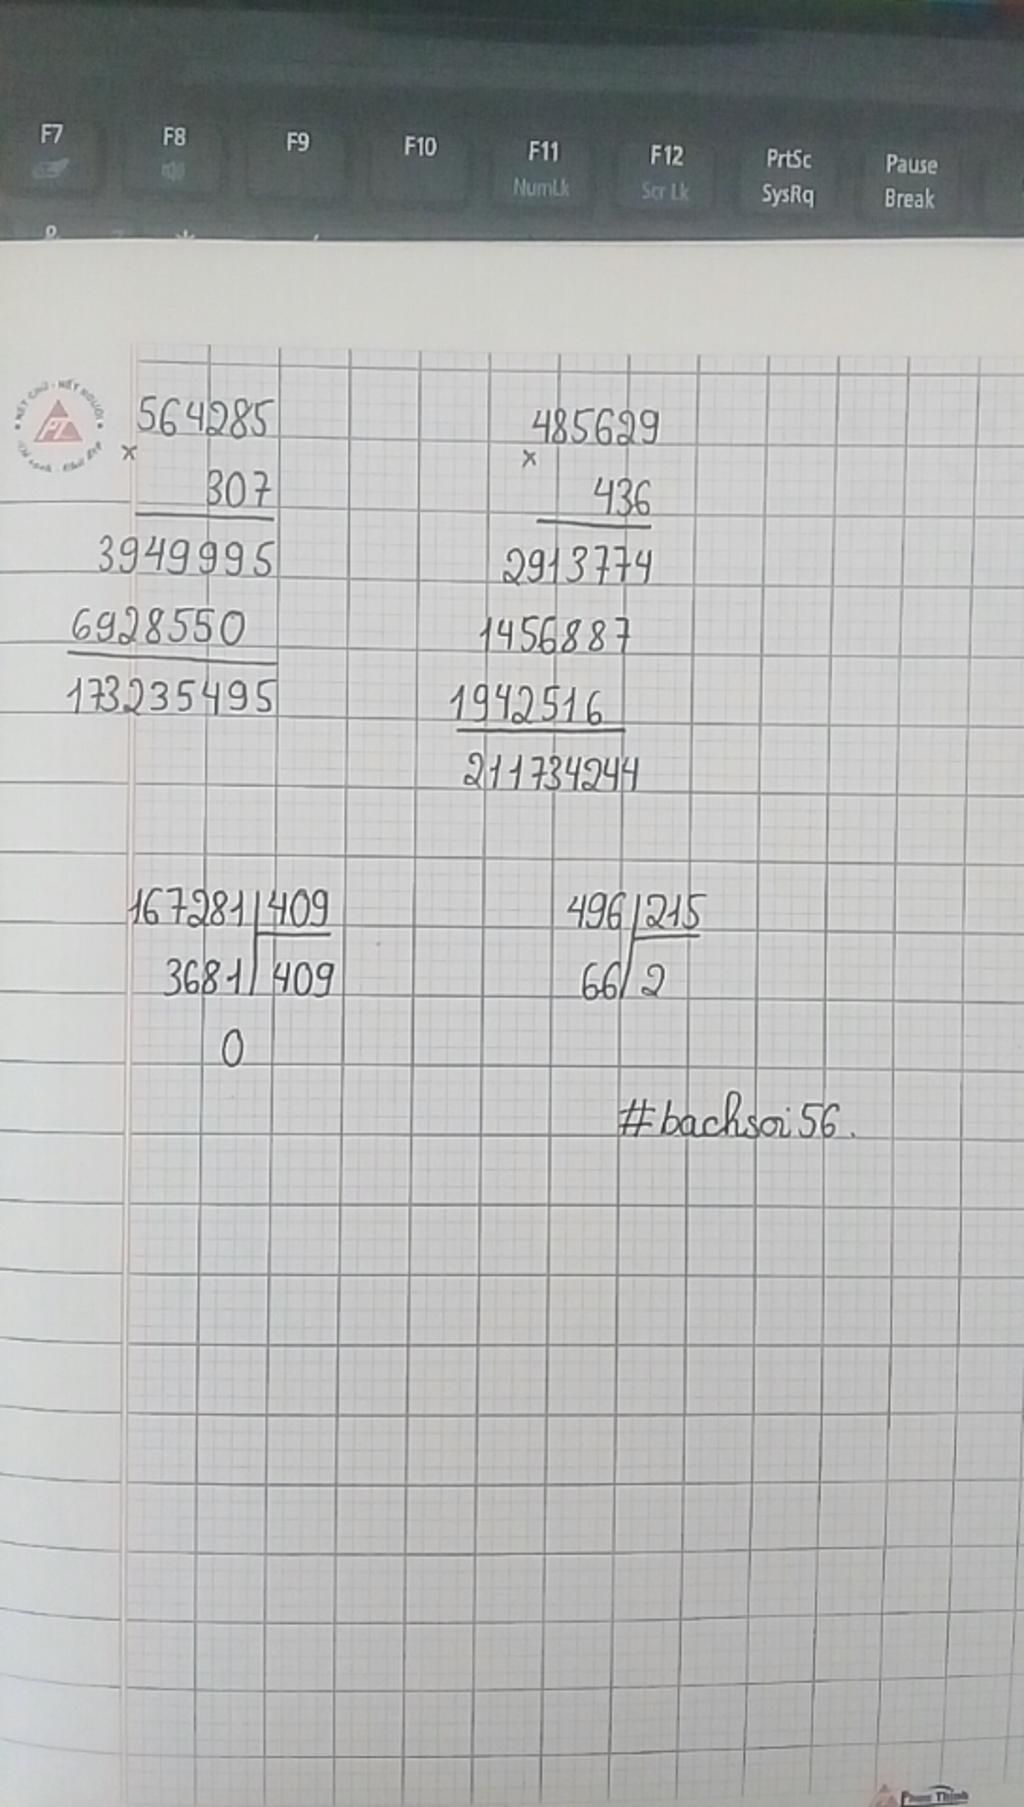 F7 F8 F9 F10 F11 F12 PrtSc Pause
NumLk Scr Lk SysRq Break
NÉT CHỮ - NẾT NGƯỜI
PT
564285
×
307
3949995
6928550
173235495
485629
×
436
2913774
1456887
1942516
211734244
167281 409
3681 409
0
496 215
66 2
#bachsoi56.